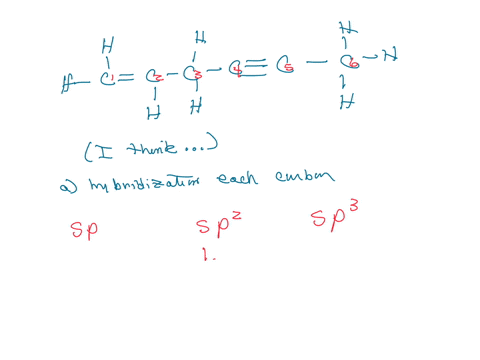 H H H
H C1 = C2 - C3 - C4 ≡ C5 - C6 - H
H H H
(I think...)
a) hybridization each carbon
sp sp² sp³
1.